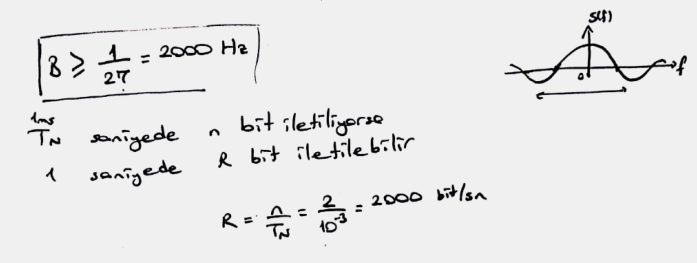 B ≥ 1/2τ = 2000 Hz
S(f)
f
0
1ms
T_N saniyede n bit iletiliyorsa
1 saniyede R bit iletilebilir
R = n/T_N = 2/10^-3 = 2000 bit/sn